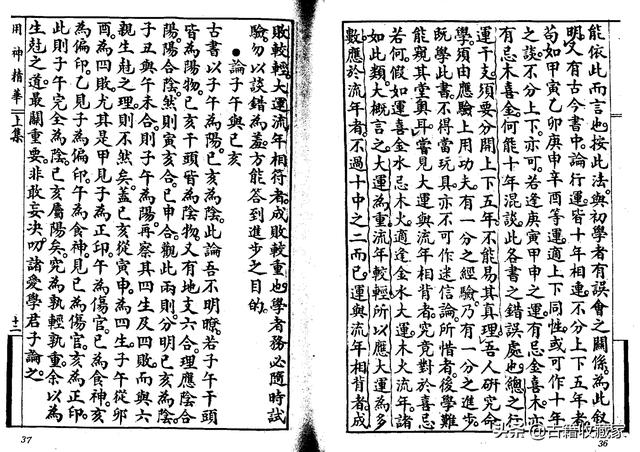 能依此而言也。按此法。與初學者有誤會之關係。為此叙
明。又有古今書中。論行運皆十年相連。不分上下五年者。
苟如甲寅乙卯庚申辛酉等運。適上下同性。或可作十年
之談。不分上下。亦可。若逢庚寅甲申之運。有忌金喜木。亦
有忌木喜金。何能十年混談。此各書之錯誤處也。總之行
運干支。須要分開上下五年。不能易其真理。吾人研究命
學。須由應驗上用功夫。有一分之經驗。乃有一分之進步。
既學此書。不得當玩具。亦不可作迷信論。所惜者。後學難
能窺其堂奧耳。嘗見大運與流年相背者。究竟對於喜忌
若何。假如運喜金水。忌木火。適逢金水大運。木火流年。諸
如此類。大概言之。大運為重。流年較輕。所以應大運為多
數。應於流年者。不過十中之二而已。運與流年相背者。成
36
敗較輕。大運流年相符者。成敗較重也。學者務必隨時試
驗。勿以談錯為羞。方能答到進步之目的。
●論子午與巳亥
古書以子午為陽。巳亥為陰。此論吾不明瞭。若子午干頭
皆為陽物。巳亥干頭皆為陰物。又有地支六合。理應陰合
陽。陽合陰。然則寅亥合。巳申合。觀此兩則。分明巳亥為陰。
子丑與午未合。則子午為陽。再察其四生及四敗。而與六
親生尅之理。則不然矣。蓋巳亥從寅申。為四生。子午從卯
酉。為四敗。尤其是甲見子為正印。午為傷官。巳為食神。亥
為偏印。乙見子為偏印。午為食神。見巳為傷官。亥為正印。
此則子午完全為陰。巳亥屬陽矣。究為孰輕孰重。余以為
生尅之道。最關重要。非敢妄决。叨諸愛學君子論之。
用神精華 上集
十三
37
头条 @古籍收藏家